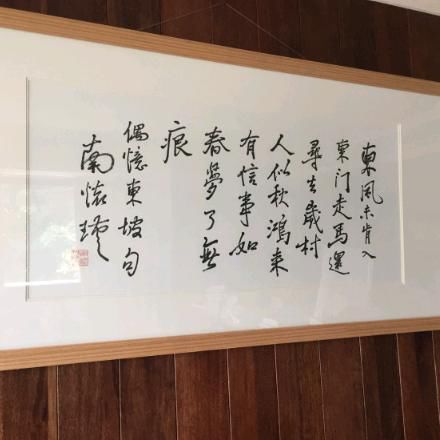 東风未肯入
東门走馬還
尋去歲村
人似秋鴻来
有信事如
春夢了無
痕
偶憶東坡句
南懐瑾